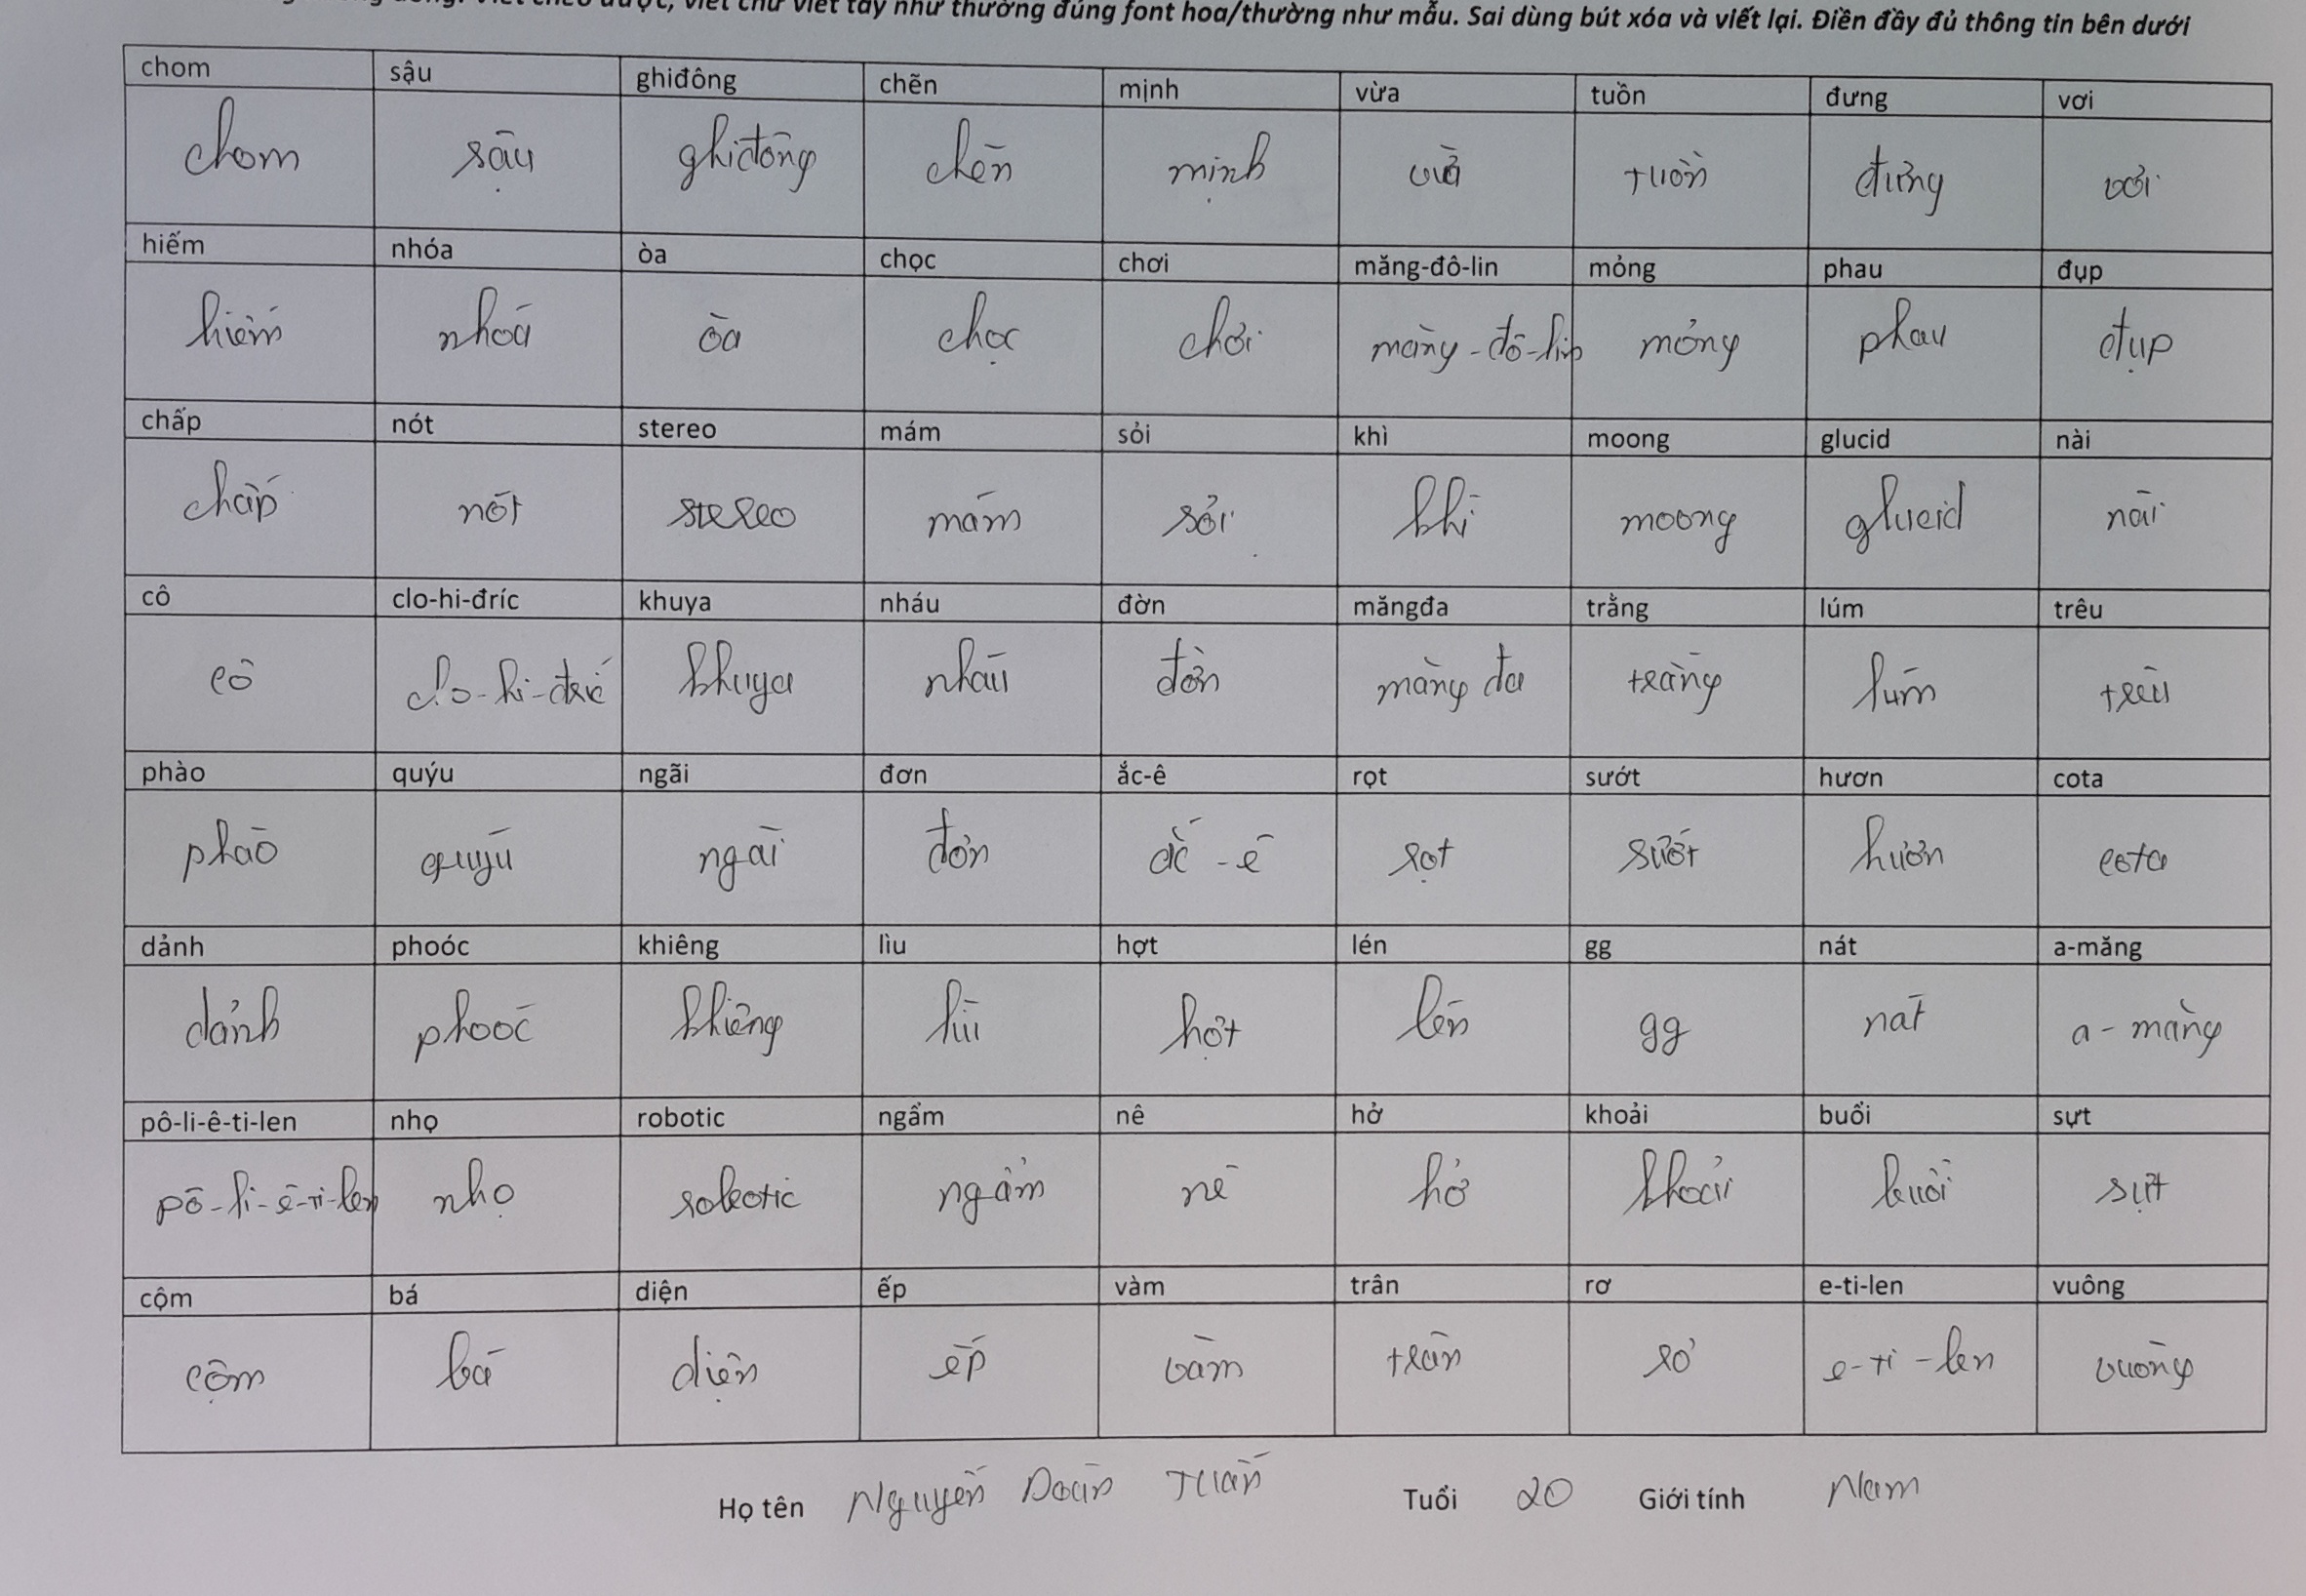 viết chữ viết tay như thường đúng font hoa/thường như mẫu. Sai dùng bút xóa và viết lại. Điền đầy đủ thông tin bên dưới
chom sậu ghiđông chẽn mịnh vừa tuồn đưng vơi
chom sậu ghiđông chẽn mịnh vừa tuồn đưng vơi
hiếm nhóa òa chọc chơi măng-đô-lin mỏng phau đụp
hiếm nhóa òa chọc chơi măng-đô-lin mỏng phau đụp
chấp nót stereo mám sỏi khì moong glucid nài
chấp nót stereo mám sỏi khì moong glucid nài
cô clo-hi-đríc khuya nháu đờn măngđa trằng lúm trêu
cô clo-hi-đríc khuya nháu đờn măng đa trằng lúm trêu
phào quýu ngãi đơn ắc-ê rọt sướt hươn cota
phào quýu ngãi đơn ắc-ê rọt sướt hươn cota
dảnh phoóc khiêng lìu hợt lén gg nát a-măng
dảnh phoóc khiêng lìu hợt lén gg nát a-măng
pô-li-ê-ti-len nhọ robotic ngẩm nê hở khoải buổi sựt
pô-li-ê-ti-len nhọ robotic ngẩm nê hở khoải buổi sựt
cộm bá diện ếp vàm trân rơ e-ti-len vuông
cộm bá diện ếp vàm trân rơ e-ti-len vuông
Họ tên Nguyễn Doãn Tuấn Tuổi 20 Giới tính Nam